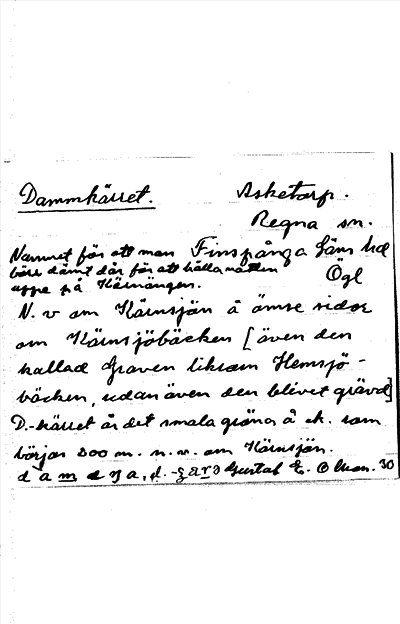 Dammkärret. Asketorp.
Regna sn.
Namnet för att man Finspånga läns hd
förr dämt där för att hålla vatten Ögl
uppe på Kärnängen.
N. v om Kärnsjön å ömse sidor
om Kärnsjöbäcken [även den
kallad Graven liksom Hemsjö-
bäcken, sedan även den blivit grävd]
D.-kärret är det smala gröna å ek. som
börjar 200 m. n.v. om Kärnsjön.
Gustaf E. Olson. 30